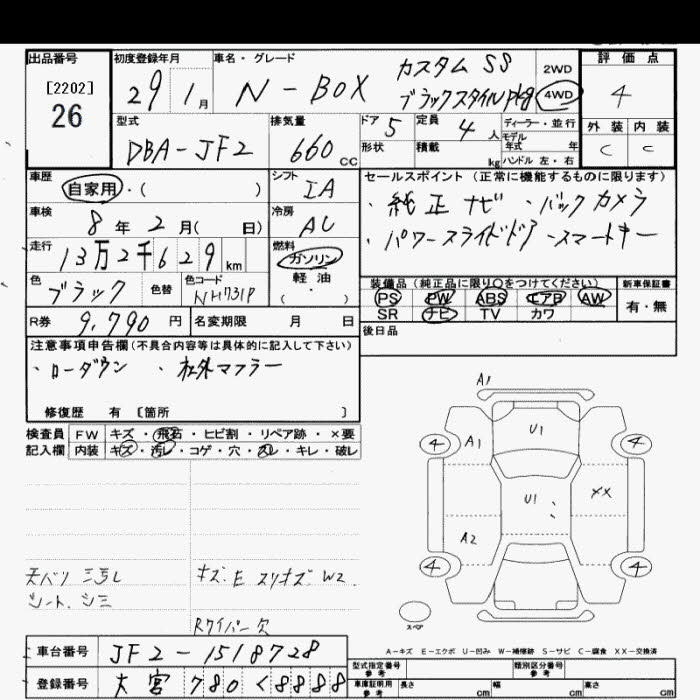 出品番号 初度登録年月 車名・グレード 評価点
[2202]
26
29 1月 N-BOX カスタム SS
ブラックスタイルpkg
2WD
4WD
4
型式 排気量 ドア 定員 ディーラー・並行
DBA-JF2 660cc 5 4人 モデル年式 年
形状 積載 kg ハンドル 左・右
外装 内装
C C
車歴 シフト
自家用・( ) IA
車検 冷房
8年2月( 日) AC
走行 燃料
13万2千629km ガソリン
軽油
( ・ )
色 色替 色コード
ブラック NH731P
R券 9,790円 名変期限 月 日
セールスポイント (正常に機能するものに限ります)
・純正ナビ ・バックカメラ
・パワースライドドア ・スマートキー
装備品(純正品に限り○をつけてください) 新車保証書
PS PW ABS エアB AW 有・無
SR ナビ TV カワ
後日品
注意事項申告欄(不具合内容等は具体的に記入して下さい)
・ローダウン ・社外マフラー
修復歴 有 〔箇所 〕
検査員 FW キズ・飛石・ヒビ割・リペア跡・×要
記入欄 内装 キズ・汚レ・コゲ・穴・スレ・キレ・破レ
A1
4 A1 U1 4
U1 XX
A2
4 4
スペア
天バリ
シート シミ
キズ、E スリキズ W2
Rワイパー欠
A-キズ E-エクボ U-凹み W-補修跡 S-サビ C-腐食 XX-交換済
車台番号 JF2-1518728
登録番号 大宮 780 く 8888
型式指定番号 参考 類別区分番号 参考
車庫証明用 参考 長さ cm 幅 cm 高さ cm